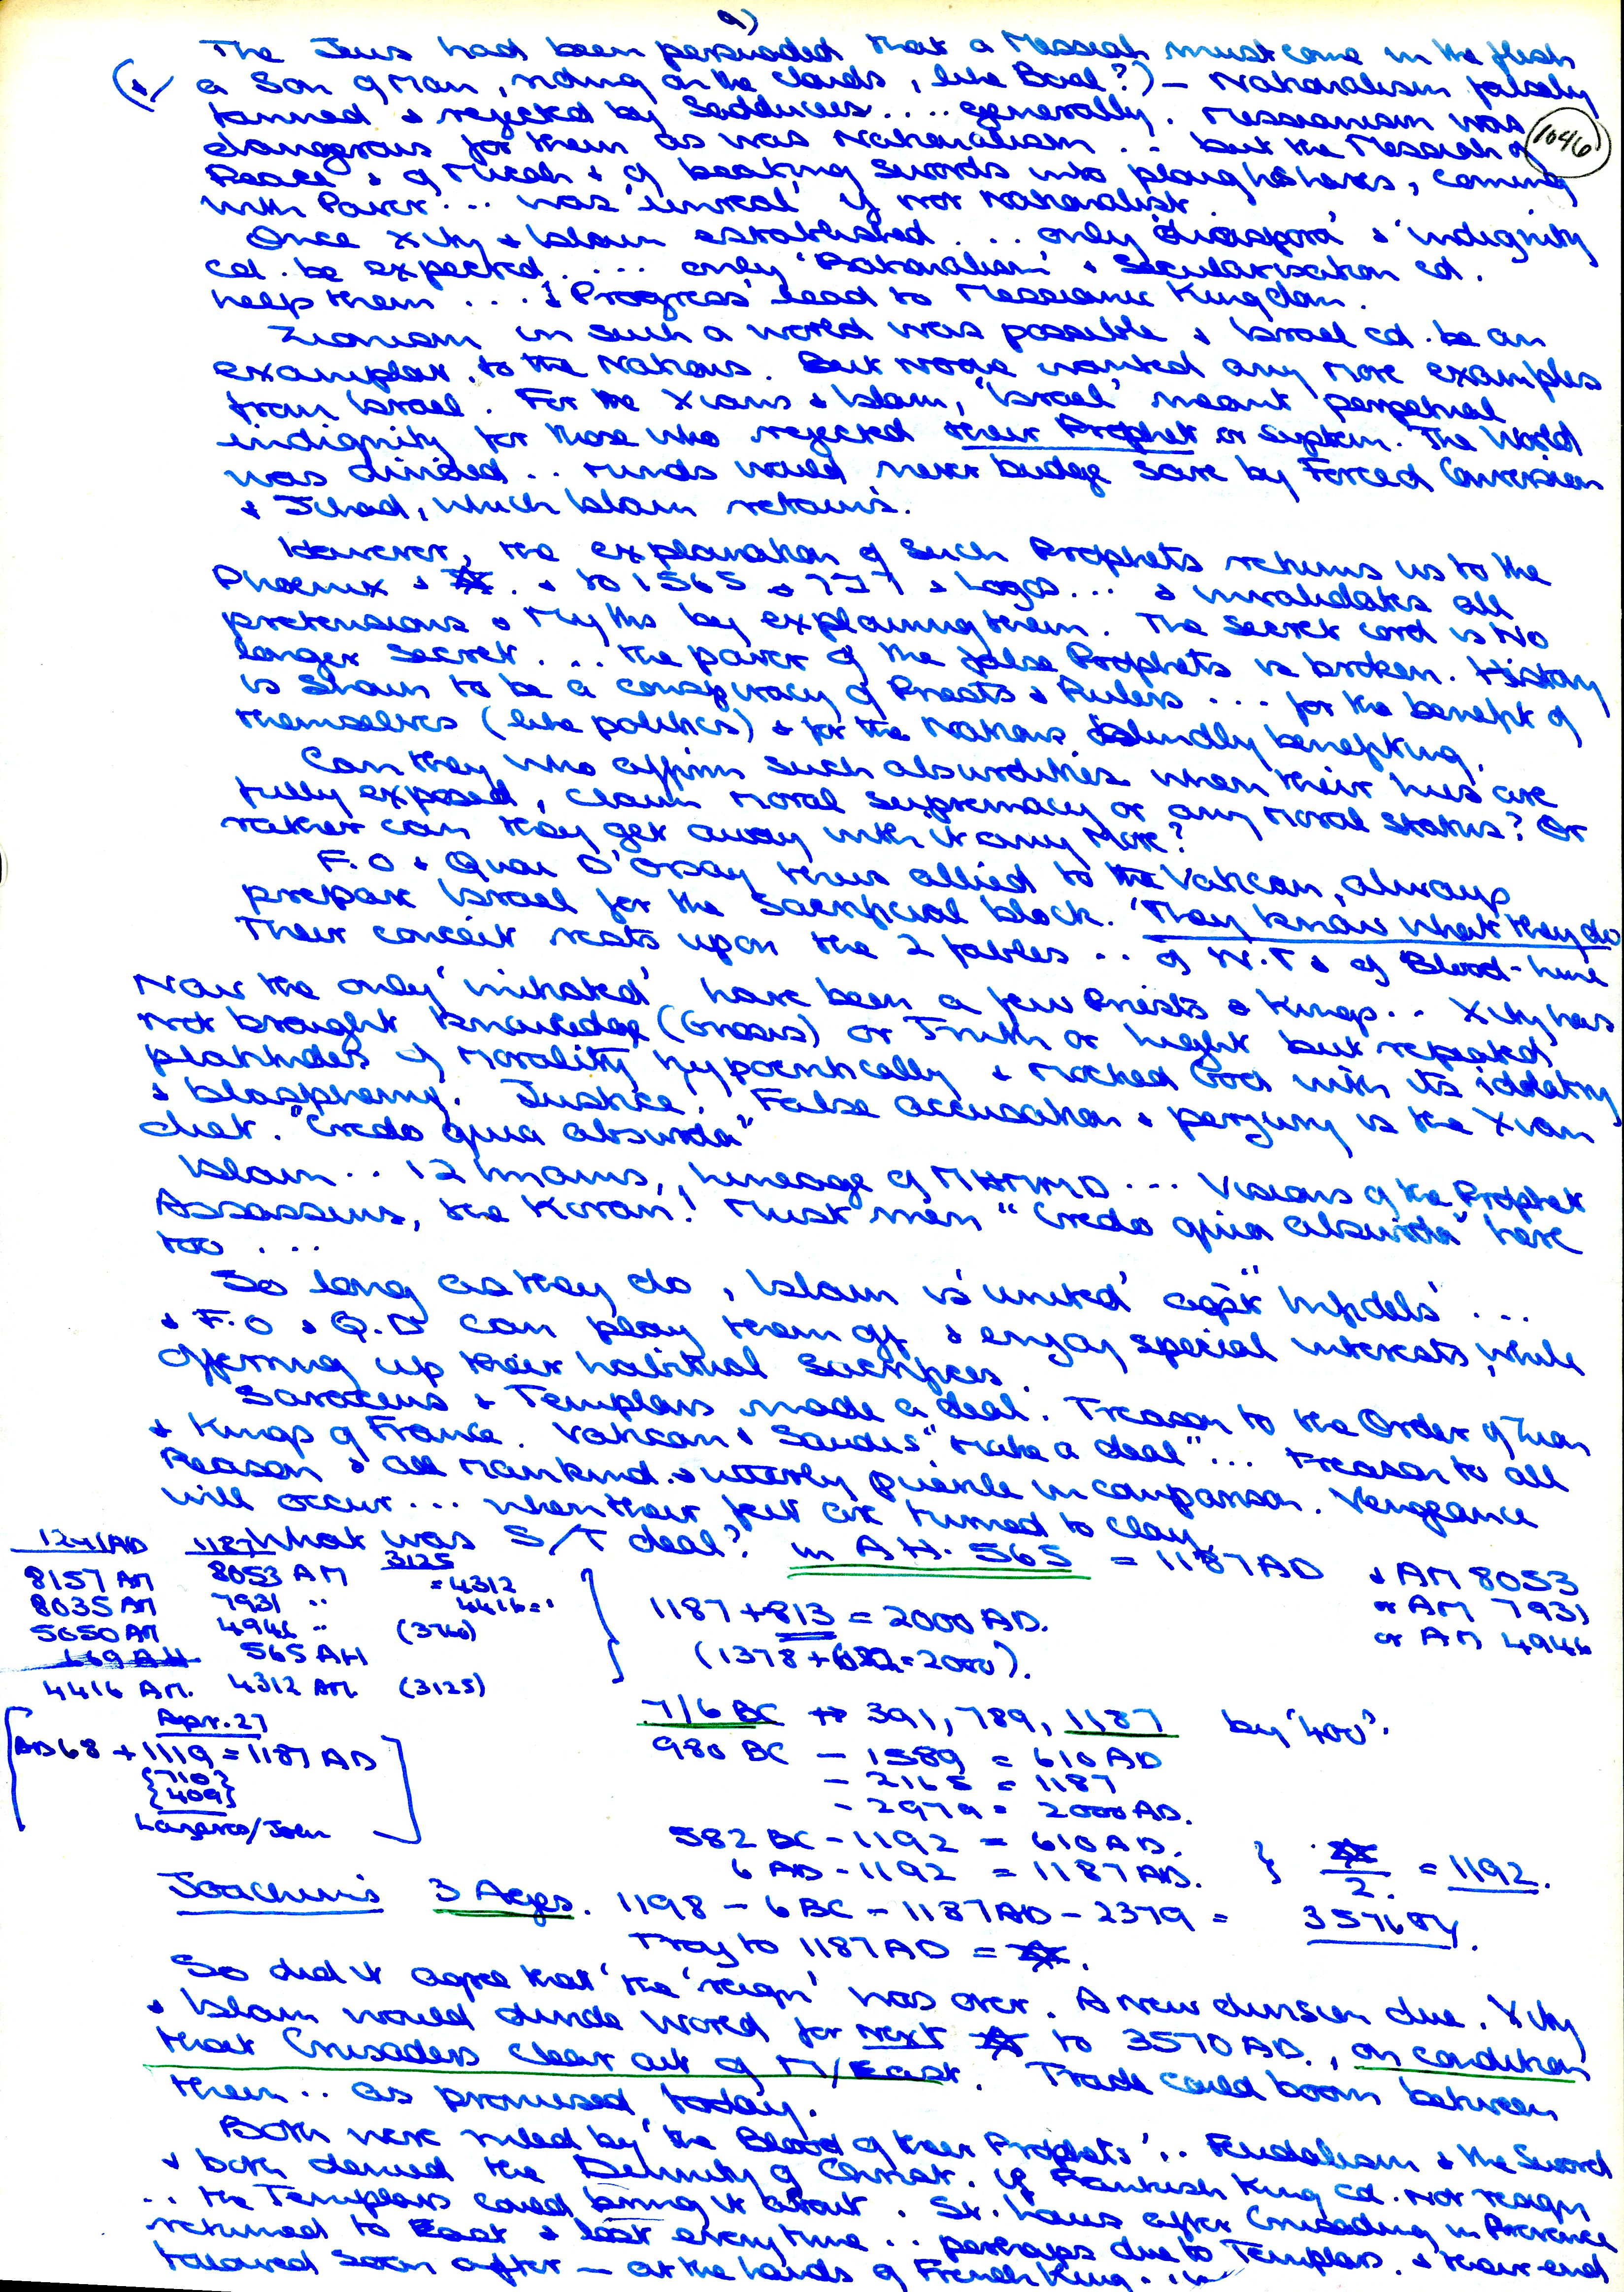 9)
The Jews had been persuaded that a Messiah must come in the flesh
(↓) a Son of Man, riding on the clouds, like Baal?) – Nationalism falsely
fanned & rejected by Sadducees .... generally. Messianism was
1046
dangerous for them as was Nationalism .. but the Messiah of
Peace & of Micah & of beating Swords into ploughshares, coming
with Power ... was 'unreal' if not Nationalist.
Once Xity & Islam established ... only 'diaspora' & 'indignity'
cd. be expected .... only 'Rationalism' & Secularisation cd.
help them ... & 'Progress' lead to Messianic Kingdom.
Zionism in such a world was possible & Israel cd. be an
exemplar, to the Nations. But None wanted any more examples
from Israel. For the Xians & Islam, 'Israel' meant 'perpetual
indignity for those who rejected their Prophet or System.' The World
was divided .. Minds would never budge save by Forced Conversion
& Jihad, which Islam retains.
However, the explanation of such Prophets returns us to the
Phoenix & ✡ . & to 1565 & 727 & Logos ... & invalidates all
pretensions & Myths by explaining them. The Secret cord is No
longer Secret ... the power of the false Prophets is broken. History
is shown to be a conspiracy of Priests & Rulers ... for the benefit of
themselves (like politics) & for the Nations blindly benefiting.
Can they who affirm such absurdities when their lies are
fully exposed, claim moral supremacy or any moral status? Or
rather can they get away with it any More?
F.O & Quai D'Orsay thus allied to the Vatican, always
prepare Israel for the Sacrificial block. 'They know what they do
Their conceit rests upon the 2 fables .. of N.T & of Blood-line
Now the only 'initiated' have been a few Priests & Kings .. Xity has
not brought Knowledge (Gnosis) or Truth or Light but repeated
platitudes of Morality hypocritically & mocked God with its idolatry
& blasphemy. Justice! False accusation & perjury is the Xian
diet. "Credo quia absurda"
Islam .. 12 Imams, lineage of MHMMD ... Visions of the Prophet
Assassins, the Koran! Must men "Credo quia absurda" here
too ...
So long as they do, Islam is 'united' agst 'Infidels' ...
& F.O & Q.D can play them off & enjoy special interests, while
offering up their habitual Sacrifices.
Saracens & Templars made a deal. Treason to the Order of Sion
& Kings of France. Vatican & Saudis "Make a deal" ... Treason to all
Reason & all Mankind. & utterly puerile in comparison. Vengeance
will occur ... when their feet are turned to clay.
What was S/T deal? in A.H. 565 = 1187 AD & AM 8053
or AM 7931
or AM 4946
1241 AD 1187 3125
8157 AM 8053 AM = 4312
8035 AM 7931 " 4416 = "
5050 AM 4946 " (3760)
669 AH 565 AH
4416 AM. 4312 AM. (3125)
1187 + 813 = 2000 AD.
(1378 + 622 = 2000).
Apr. 27
AD 68 + 1119 = 1187 AD
{710}
{409}
Lazarus/John
716 BC → 391, 789, 1187 by '400'.
980 BC – 1589 = 610 AD
– 2165 = 1187
– 2979 = 2000 AD.
582 BC – 1192 = 610 AD.
6 AD – 1192 = 1187 AD. } ✡/2. = 1192.
Joachim's 3 Ages. 1198 – 6 BC – 1187 AD – 2379 = 3576 SY.
Troy to 1187 AD = ✡.
So did it agree that 'the 'reign' was over. A new division due. Xity
& Islam would divide World for next ✡ to 3570 AD., on condition
that Crusaders clear out of M/East. Trade could boom between
them .. as promised today.
Both were ruled by 'the Blood of their Prophets' .. Feudalism & the Sword
& both denied the Divinity of Christ. If Frankish King cd. not resign
.. the Templars could bring it about. St. Louis after Crusading in Provence
returned to East & lost every time .. perhaps due to Templars. & their end
followed soon after – at the hands of French King.